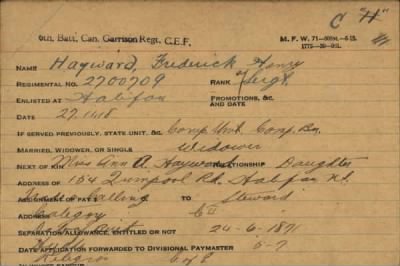 C "H"
6th. Batt. Can. Garrison Regt. C.E.F.
M. F. W. 71
1772-39-
NAME Hayward, Frederick Henry
REGIMENTAL NO. 2700709 RANK Sergt
ENLISTED AT Halifax PROMOTIONS, &C. AND DATE
DATE 27.11.18
IF SERVED PREVIOUSLY, STATE UNIT, &C. Comp. Unit, Comp. Bn.
MARRIED, WIDOWER, OR SINGLE Widower
NEXT OF KIN Miss Ann A. Hayward RELATIONSHIP Daughter
ADDRESS OF 154 Quinpool Rd. Halifax N.S.
Trade Calling Steward
ASSIGNMENT OF PAY $ TO
Category
SEPARATION ALLOWANCE, ENTITLED OR NOT 24-6-1871
DATE APPLICATION FORWARDED TO DIVISIONAL PAYMASTER 5-7
Religion C of E